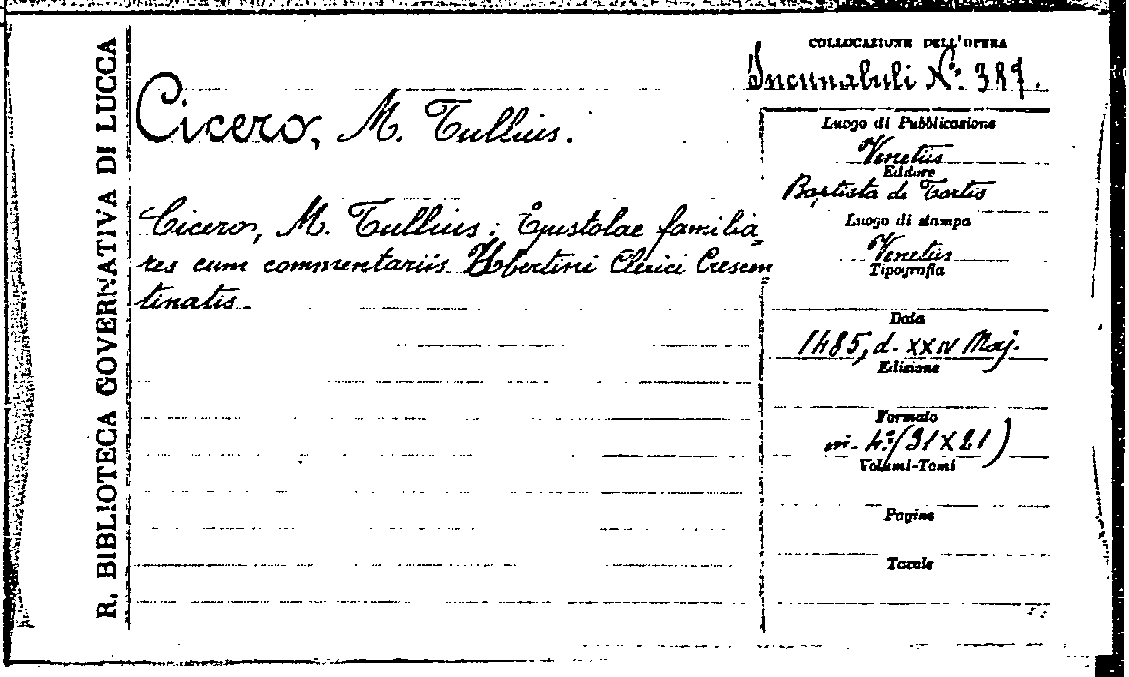 R. BIBLIOTECA GOVERNATIVA DI LUCCA
Cicero, M. Tullius.
Cicero, M. Tullius: Epistolae familia-
res cum commentariis Ubertini Clerici Crescen
tinatis.
COLLOCAZIONE DELL'OPERA
Incunabuli No: 387.
Luogo di Pubblicazione
Venetiis
Editore
Baptista de Tortis
Luogo di stampa
Venetiis
Tipografia
Data
1485, d. XXIV Maj.
Edizione
Formato
in-4o (31 X 21)
Volumi-Tomi
Pagine
Tavole